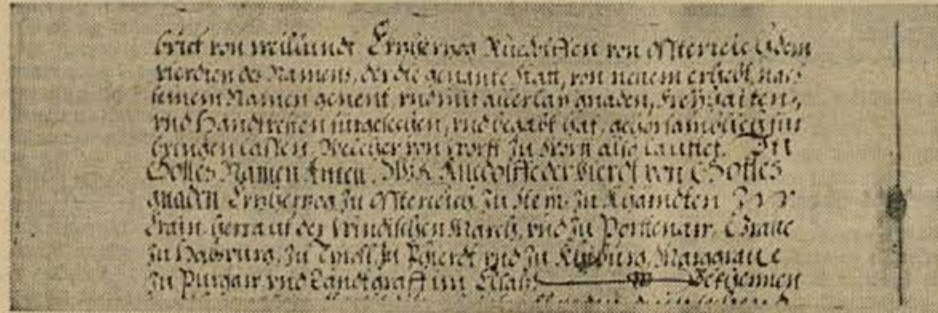 brief von weillundt Ertzhertzog Ruedolffen von Osterreich dem
vierdten des Namens, der die genante Statt, von neuem erhebt, nach
seinem Namen genent vnd mit allerlay gnaden, Freyhaiten,
vnd Handtvesten fürgesechen, vnd begabt hat, gehorsamblich für
bringen lassen, Welcher von wortt zu wortt also lautet. In
Gottes Namen Amen. Wir Ruedolff der vierdt von Gottes
gnaden Ertzhertzog zu Osterreich, zu Steir, zu Kharndten
Crain, Herr auf der Windischen March, vnd zu Porttenaw, Graue
zu Habspurg, zu Tyroll, zu Phierdt vnd zu Khyburg, Marggraue
zu Purgaw vnd Landtgraff im Elsaß Bekhennen